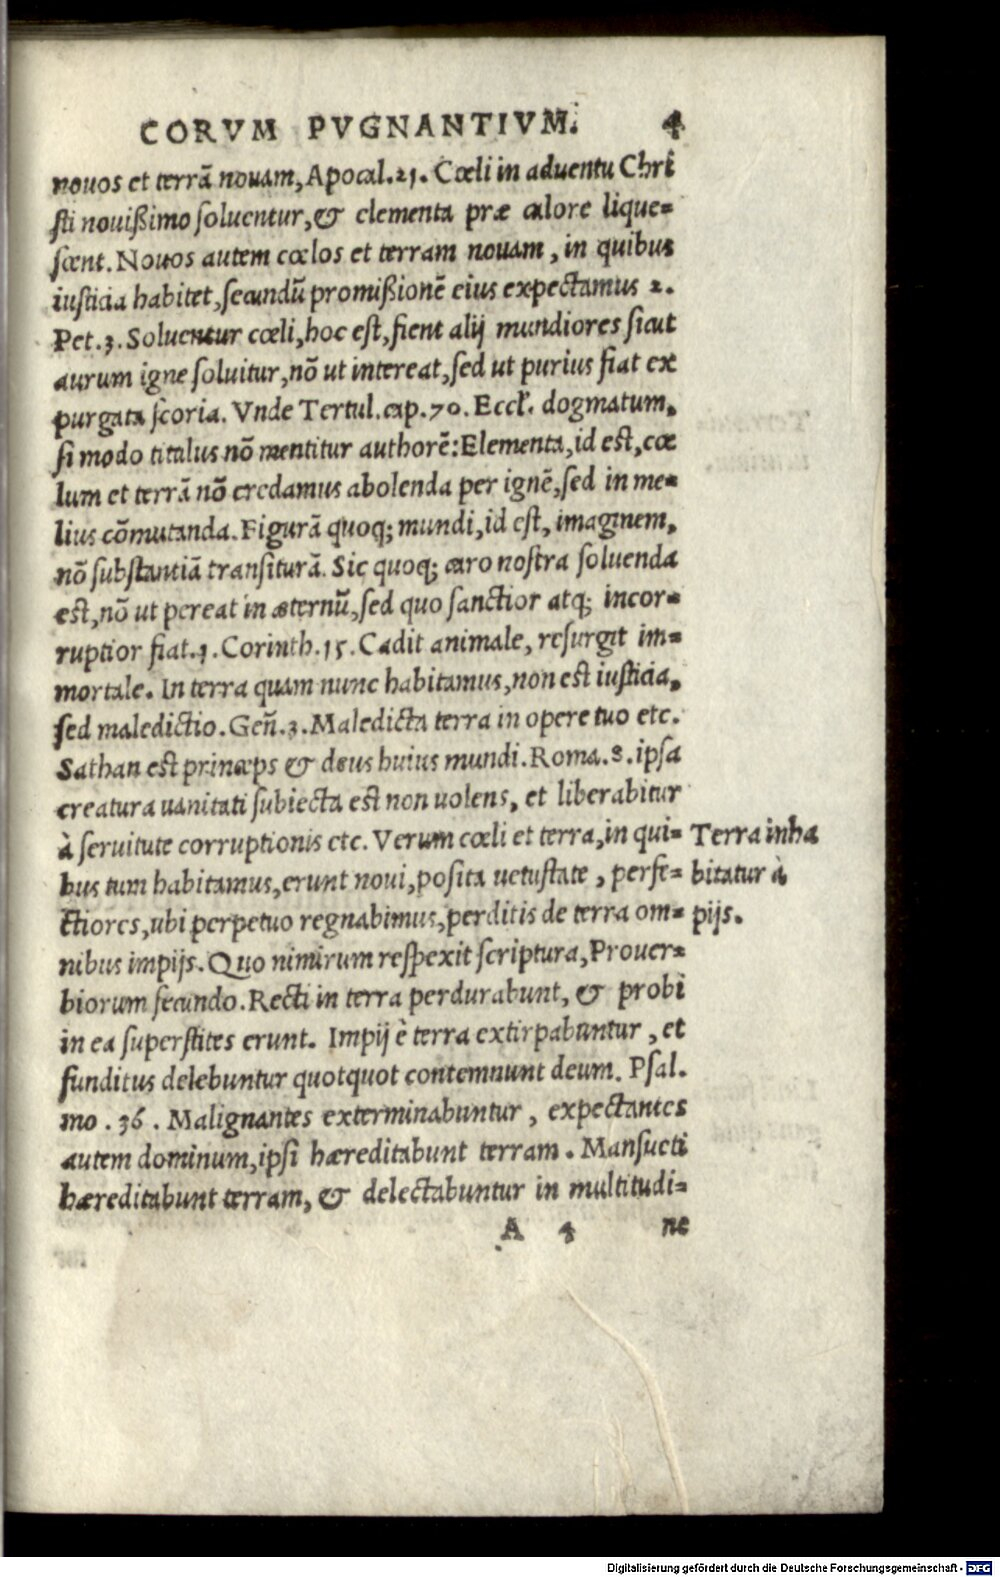 CORVM PVGNANTIVM. 4
nouos et terrã nouam, Apocal.21. Cœli in aduentu Chri
sti nouißimo soluentur, & elementa præ calore lique=
scent. Nouos autem cœlos et terram nouam, in quibus
iusticia habitet, secundũ promißionẽ eius expectamus 2.
Pet.3. Soluentur cœli, hoc est, fient alij mundiores sicut
aurum igne soluitur, nõ ut intereat, sed ut purius fiat ex
purgata scoria. Vnde Tertul.cap.70. Eccl. dogmatum,
si modo titulus nõ mentitur authorẽ: Elementa, id est, cœ
lum et terrã nõ credamus abolenda per ignẽ, sed in me=
lius cõmutanda. Figurã quoq; mundi, id est, imaginem,
nõ substantiã transiturã. Sic quoq; caro nostra soluenda
est, nõ ut pereat in æternũ, sed quo sanctior atq; incor=
ruptior fiat.1. Corinth.15. Cadit animale, resurgit im=
mortale. In terra quam nunc habitamus, non est iusticia,
sed maledictio. Geñ.3. Maledicta terra in opere tuo etc.
Sathan est princeps & deus huius mundi. Roma.8. ipsa
creatura uanitati subiecta est non uolens, et liberabitur
à seruitute corruptionis etc. Verum cœli et terra, in qui=
bus tum habitamus, erunt noui, posita uetustate, perfe=
ctiores, ubi perpetuo regnabimus, perditis de terra om=
nibus impijs. Quo nimirum respexit scriptura, Prouer=
biorum secundo. Recti in terra perdurabunt, & probi
in ea superstites erunt. Impij è terra extirpabuntur, et
funditus delebuntur quotquot contemnunt deum. Psal.
mo. 36. Malignantes exterminabuntur, expectantes
autem dominum, ipsi hæreditabunt terram. Mansueti
hæreditabunt terram, & delectabuntur in multitudi=
A 4 ne
Terra inha
bitatur à
pijs.
Digitalisierung gefördert durch die Deutsche Forschungsgemeinschaft - DFG